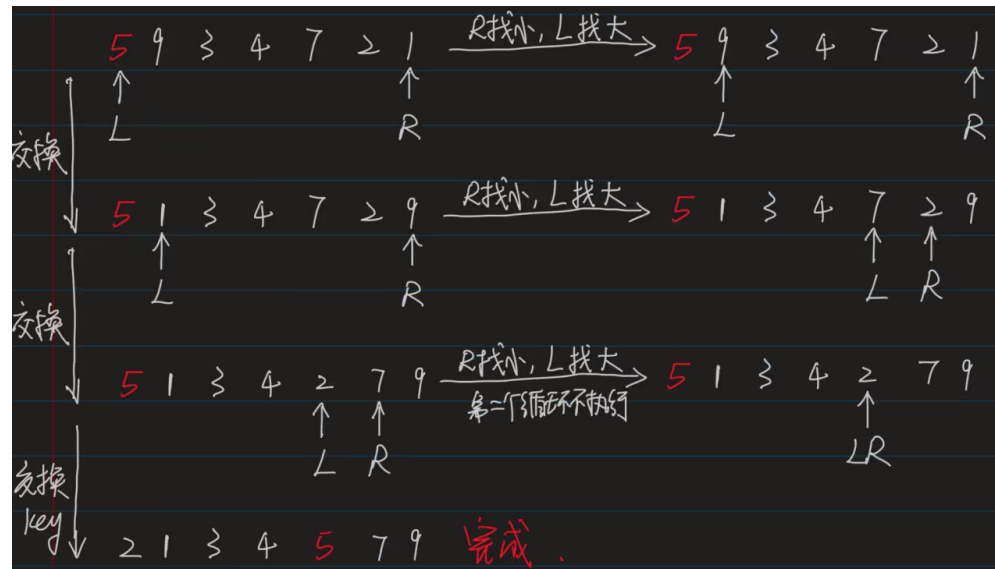 5 9 3 4 7 2 1 R找小, L找大 5 9 3 4 7 2 1
L R L R
交换
5 1 3 4 7 2 9 R找小, L找大 5 1 3 4 7 2 9
L R L R
交换
5 1 3 4 2 7 9 R找小, L找大 5 1 3 4 2 7 9
第二个循环不执行
L R LR
交换
key
2 1 3 4 5 7 9 完成.